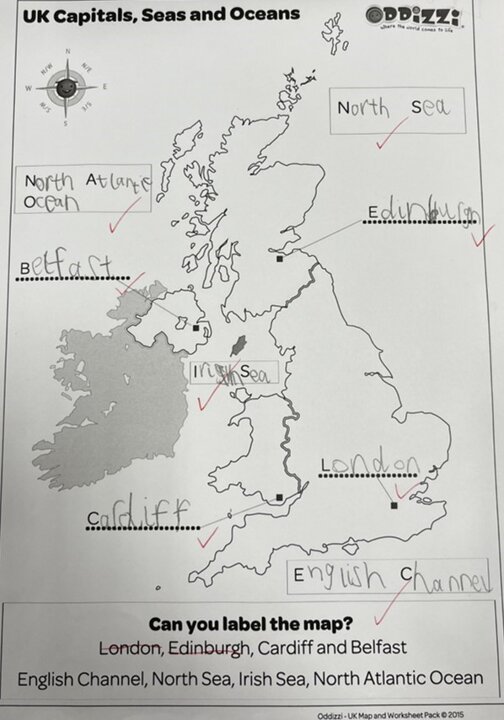 UK Capitals, Seas and Oceans
ODDiZZi
where the world comes to life
N
N/W
N/E
W
E
S/W
S/E
S
North Sea
North Atlantic
Ocean
Edinburgh
Belfast
Irish Sea
London
Cardiff
English Channel
Can you label the map?
London, Edinburgh, Cardiff and Belfast
English Channel, North Sea, Irish Sea, North Atlantic Ocean
Oddizzi - UK Map and Worksheet Pack © 2015